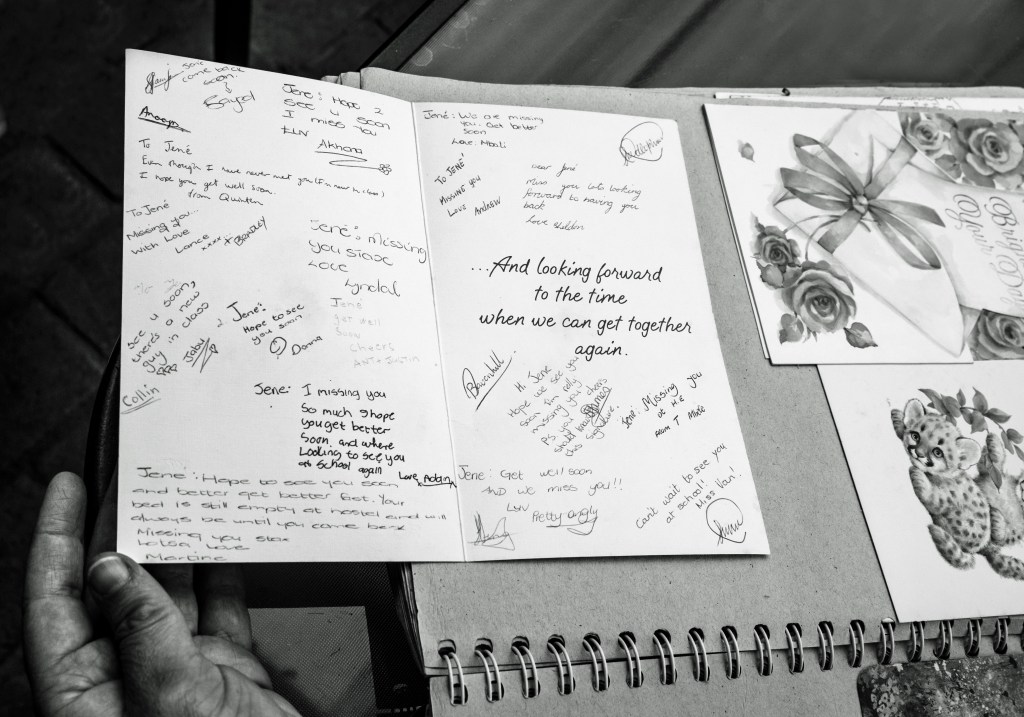 soon
come back
soon.
Jene: Hope 2
see u soon
I miss You
Akhona
To Jené
Even though I have never met you
I hope you get well soon.
from Quinten
To Jené
Missing you...
With Love
Lance xxxx + BRADLEY
Jene: missing
you stax
Love
Lyndal
see u soon,
there's a new
guy in class
Jené:
Hope to see
you soon
Donna
Jene
get well
soon
cheers
Collin
Jene: I missing you
So much I hope
you get better
Soon and where
Looking to see you
at school again
Love Adbin
Jene: Hope to see you soon
and better get better fast. Your
bed is still empty at hostel and will
always be until you come back
Missing you stax
Lotsa love
Martine
Jené: We are missing
you. Get better
soon
Love: Mbali
To Jené
Missing you
Love Andrew
Dear Jené
Miss you lots looking
forward to having you
back
Love Sheldon
...And looking forward
to the time
when we can get together
again.
Hi Jene
Hope we see you
soon I'm relly
missing you
P.S. you
should
this signature.
Jene: Missing you
at H.E
from T
Jene: Get well soon
AND we miss you!!
Luv
Pretty angly
Can't wait to see you
at school!
Miss Van!